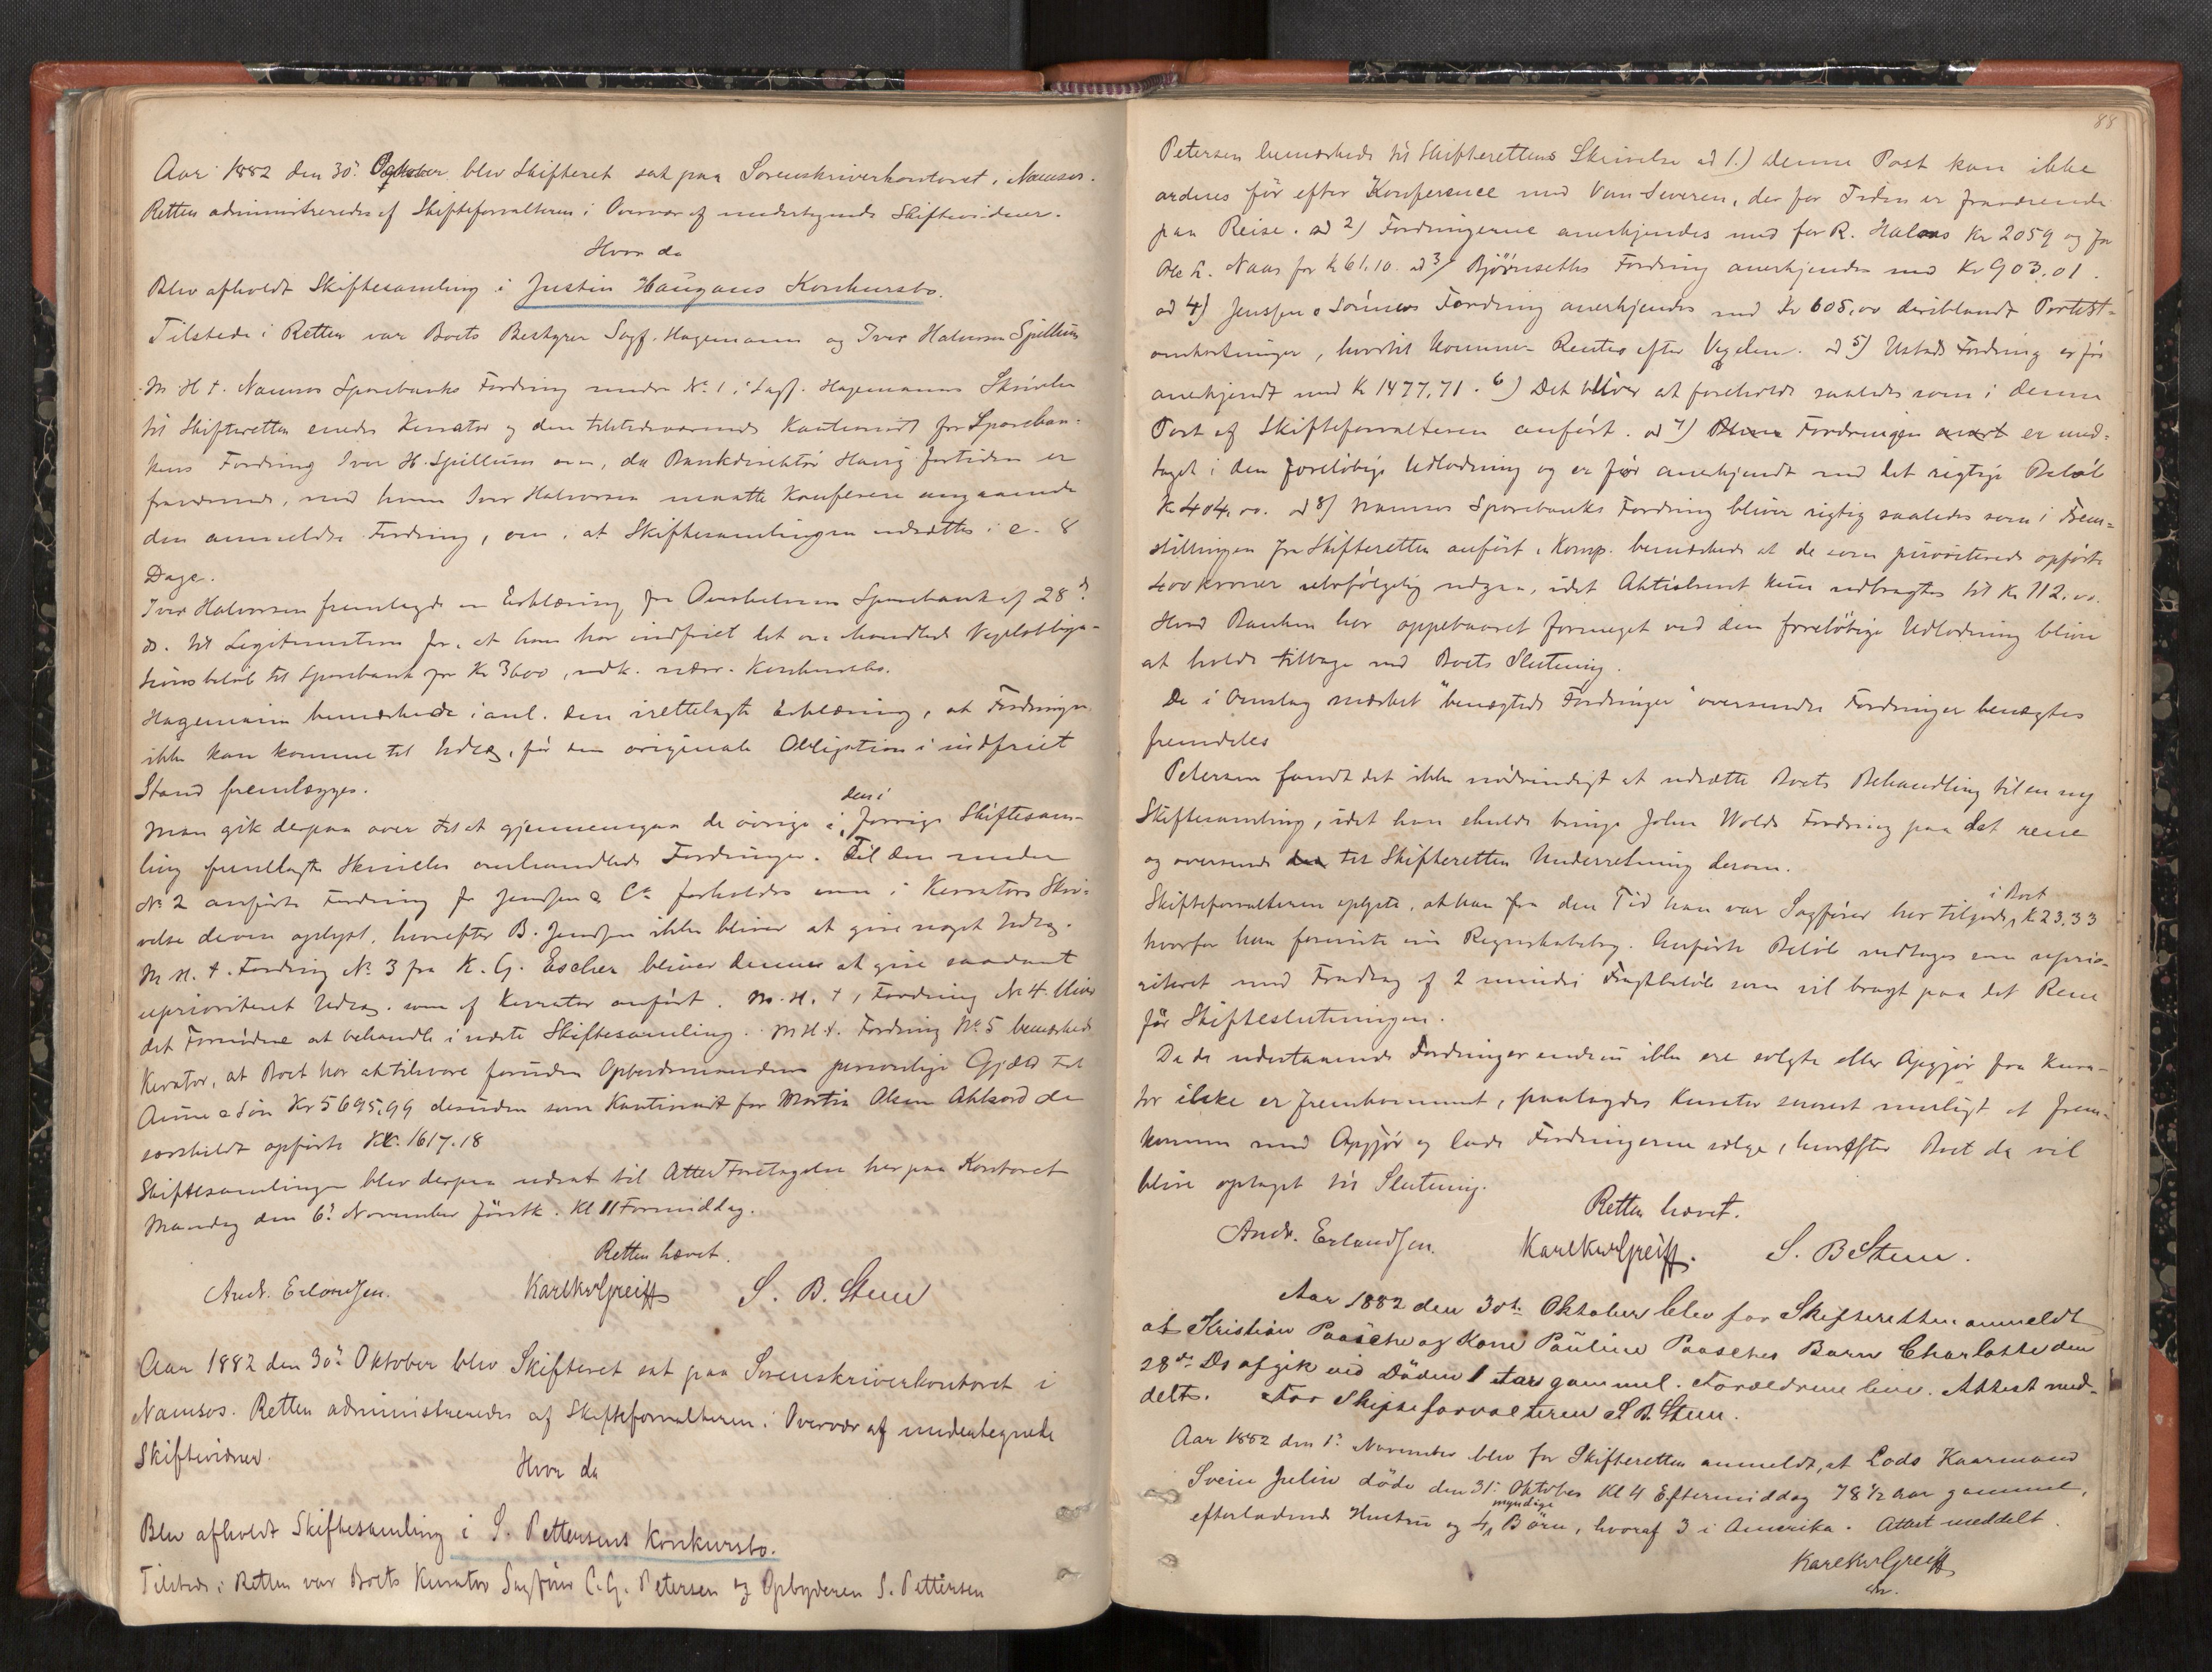 Aar 1882 den 30te Oktober blev Skifteret sat paa Sorenskriverkontoret, Namsos.
Retten administreredes af Skifteforvalteren i Overvær af undertegnede Skiftevidner.
Hvor da
Blev afholdt Skiftesamling i Justin Haugans Konkursbo.
Tilstede i Retten var Boets Bestyrer Sagf. Hagemann og Iver Halvorsen Spillum
M. H. t. Namsos Sparebanks Fordring under No 1 i Sagf. Hagemanns Skrivelse
til Skifteretten enedes Kurator og den tilstedeværende Kautionist for Spareban-
kens Fordring Iver H. Spillum om, da Bankdirektør Havig fortiden er
fraværende, med hvem Iver Halvorsen maatte konferere angaaende
den anmeldte Fordring, om, at Skiftesamlingen udsættes i c. 8
Dage.
Iver Halvorsen fremlagde en Erklæring fra Overhalvens Sparebank af 28de
ds. til Legitimation for, at han har indfriet det omhandlede
beløb til Sparebank for Kr 3600, nærv. Konkursbo.
Hagemann bemærkede i anl. den irettelagte Erklæring, at Fordringen
ikke kan komme til Udlæg, før den originale Obligation i indfriet
Stand fremlægges.
Man gik derpaa over til at gjennemgaa de øvrige i den i forrige Skiftesam-
ling fremlagte Skrivelse omhandlede Fordringer. Til den under
No 2 anførte Fordring fra Jenssen & Co forholdes som i Kurators Skri-
velse derom oplyst, hvorefter B. Jenssen ikke bliver at give noget Udlæg.
M. H. t. Fordring No 3 fra K. G. Escher bliver denne at give saadant
uprioriteret Udlæg som af Kurator anført. M. H. t. Fordring No 4 bliver
det Fornødne at behandle i næste Skiftesamling. M H t. Fordring No 5 bemærkede
Kurator, at Boet har at tilsvare foruden Opbudsmandens personlige Gjæld til
Aune & Søn Kr 5695,99 desuden som Kautionist for Martin Olsen de
særskildt opførte Kr. 1617.18
Skiftesamlingen blev derpaa udsat til Atter Foretagelse her paa Kontoret
Mandag den 6te November førstk. Kl 11 Formiddag.
Retten hævet.
Andr. Erlandsen. Karl Greiff S. B. Steen
Aar 1882 den 30te Oktober blev Skifteret sat paa Sorenskriverkontoret i
Namsos. Retten administreredes af Skifteforvalteren i Overvær af undertegnede
Skiftevidner.
Hvor da
Blev afholdt Skiftesamling i S. Pettersens Konkursbo.
Tilstede i Retten var Boets Kurator Sagfører C. G. Petersen og Opbyderen S. Pettersen
88
Petersen bemærkede til Skifterettens Skrivelse ad 1.) denne Post kan ikke
ordnes før efter Konference med Van Severen, der for Tiden er fraværende
paa Reise. ad 2) Fordringerne anerkjendes med for R. Kr 2059 og for
Ole L. Naas for Kr 61.10. ad 3) Bjørnseths Fordring anerkjendes med Kr 903.01.
ad 4) Jenssen & Sønners Fordring anerkjendes med Kr 605,00 deriblandt Protest-
omkostninger, hvortil kommer Renter efter Vexelen. ad 5) Ustads Fordring er før
anerkjendt med Kr 1477,71. 6) Det bliver at forholde saaledes som i denne
Post af Skifteforvalteren anført. ad 7) Fordringen er med-
taget i den foreløbige Udlodning og er før anerkjendt med det rigtige Beløb
Kr 404,00. ad 8) Namsos Sparebanks Fordring bliver rigtig saaledes som i Frem-
stillingen fra Skifteretten anført. Komp. bemærkede at de som prioriterede opførte
400 kroner selvfølgelig udgaar, idet Aktivbrevet kun udbragtes til Kr 112.00.
Hvad Banken har oppebaaret formeget ved den foreløbige Udlodning bliver
at holde tilbage ved Boets Slutning.
De i Omslag mærket "benægtede Fordringer" oversendte Fordringer benægtes
fremdeles
Petersen fandt det ikke nødvendigt at udsætte Boets Behandling til en ny
Skiftesamling, idet han skulde bringe John Wolds Fordring paa det rene
og oversende til Skifteretten Underretning derom.
Skifteforvalteren oplyste, at han fra den Tid han var Sagfører har tilgode i Boet Kr 23.33
hvorfor han foreviste sin Regnskabsbog. Anførte Beløb medtages som uprio-
riteret med Fradrag af 2 mindre Fragtbeløb som vil bragt paa det Rene
før Skifteslutningen.
Da de udestaaende Fordringer endnu ikke ere solgte eller Opgjør fra Kura-
tor ikke er fremkommet, paalagdes Kurator snarest muligt at frem-
komme med Opgjør og lade Fordringerne sælge, hvorefter Boet da vil
blive optaget til Slutning.
Retten hævet.
Andr. Erlandsen. Karl Greiff. S. B Steen.
Aar 1882 den 30te Oktober blev for Skifteretten anmeldt
at Kristian Paasche og Kone Pauline Paasches Barn Charlotte den
28de Ds afgik ved Døden 1 Aar gammel. Forældrene leve. Attest med-
delt. For Skifteforvalteren S B. Steen.
Aar 1882 den 1te November blev for Skifteretten anmeldt, at Lods Kaarmand
Svein Julin døde den 31te Oktober Kl 4 Eftermiddag 78 1/2 aar gammel,
efterladende Hustru og 4 myndige Børn, hvoraf 3 i Amerika. Attest meddelt.
Karl Greiff